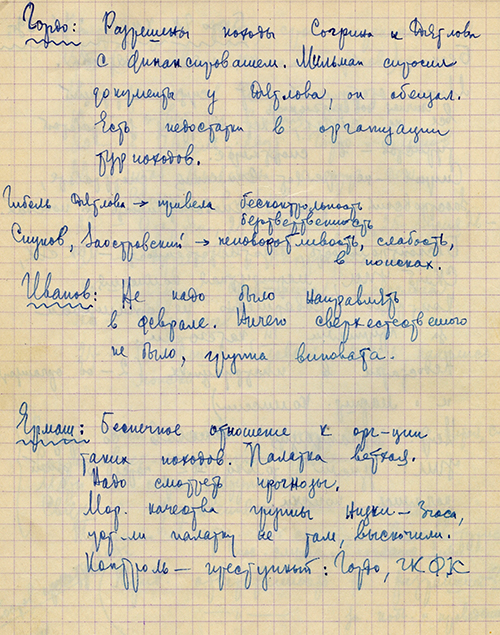 Гордо: Разрешены походы Согрина и Дятлова
с финансированием. Мильман спросил
документы у Дятлова, он обещал.
Есть недостатки в организации
турпоходов.
Гибель Дятлова → привела бесконтрольность
безответственность
Слуков, Заостровский → неповоротливость, слабость,
в поисках.
Иванов: Не надо было направлять
в феврале. Ничего сверхестественого
не было, группа виновата.
Ермаш: Беспечное отношение к орг-ции
таких походов. Палатка ветхая.
Надо смотреть прогнозы.
Мор. качества группы низки – 3 часа,
палатку не там, выскочили.
Контроль – преступный: Гордо, ГКФК